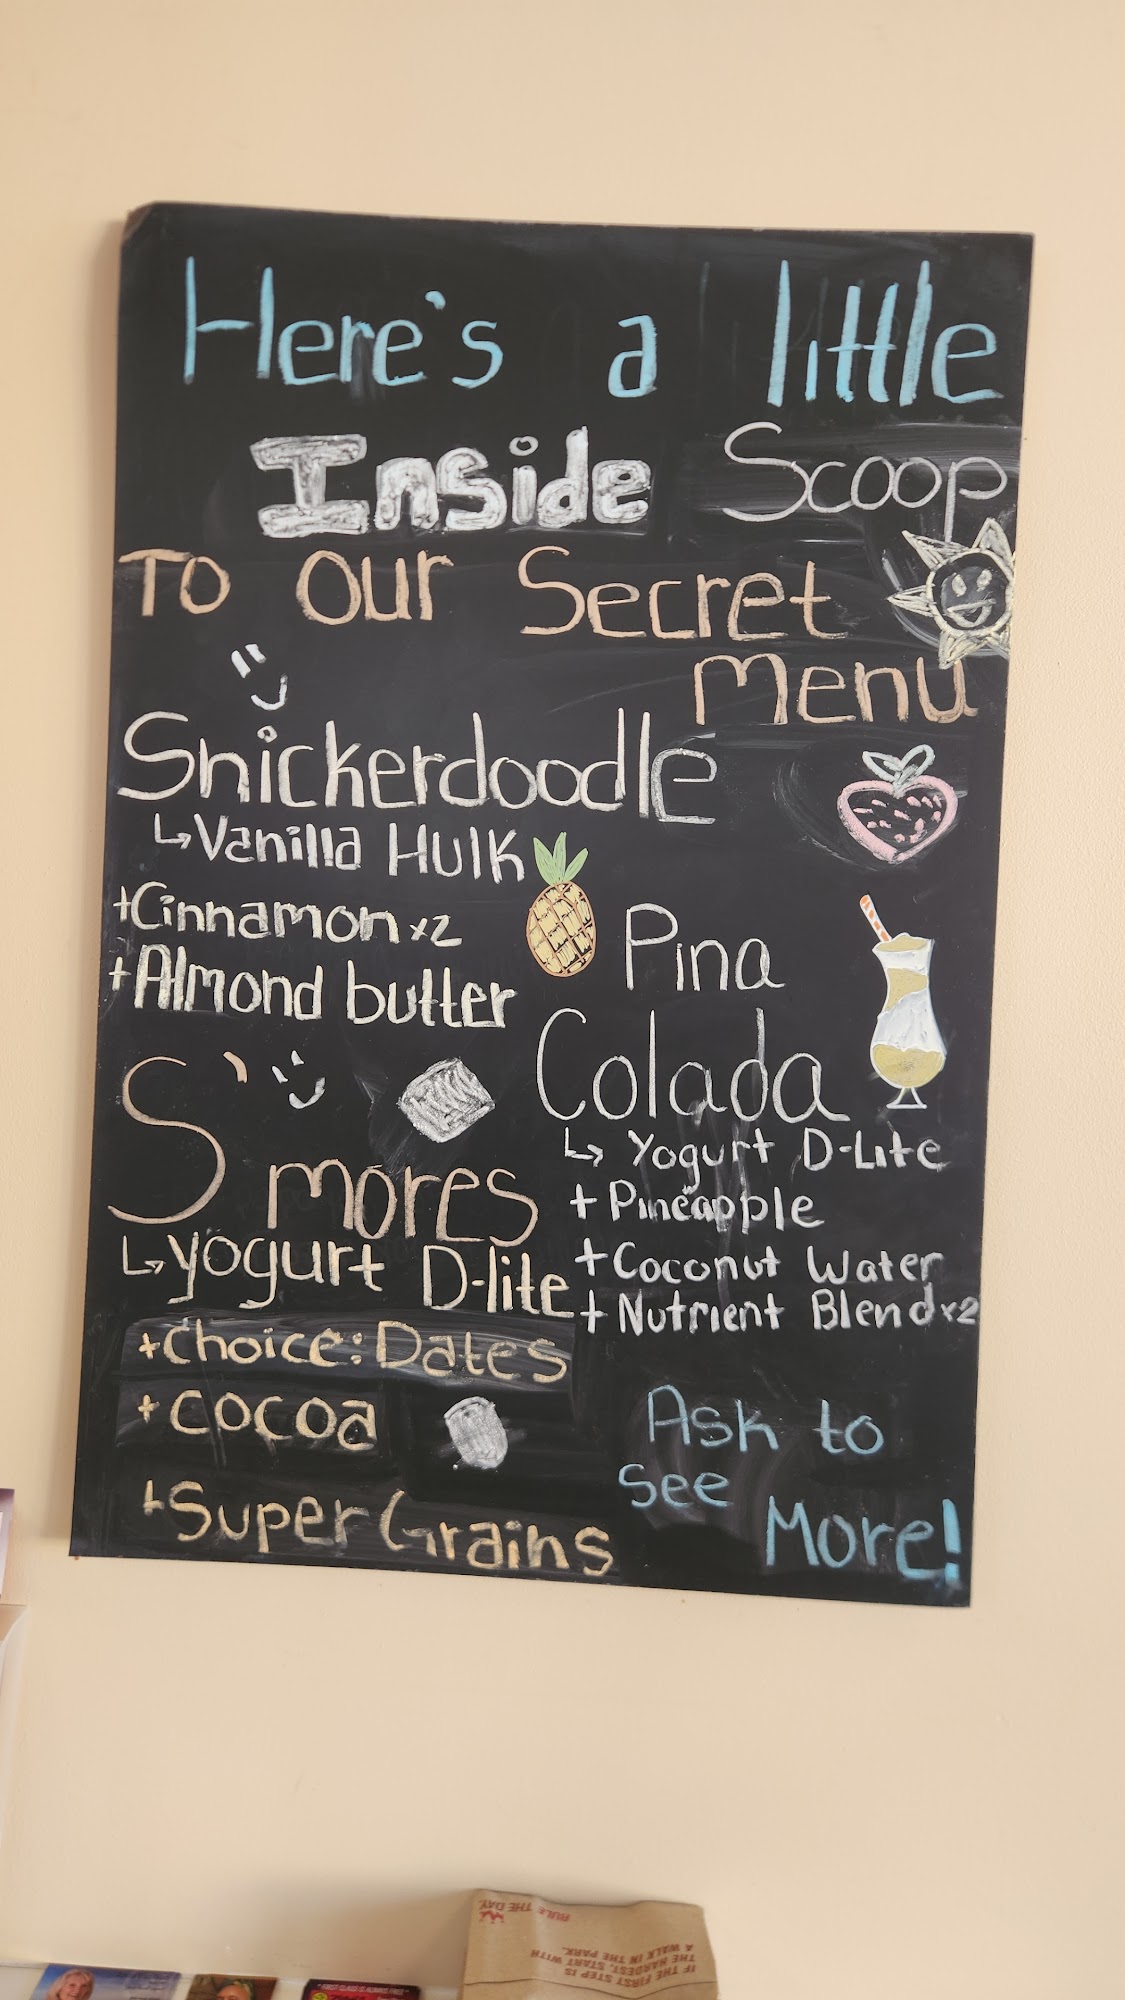 Here's a little
Inside Scoop
To our Secret
menu
Snickerdoodle
↳Vanilla Hulk
+Cinnamon x2
+Almond butter
Pina
Colada
↳ Yogurt D-Lite
+ Pineapple
+ Coconut Water
+ Nutrient Blend x2
S'mores
↳Yogurt D-lite
+Choice: Dates
+ Cocoa
↳Super Grains
Ask to
see
More!
RULE THE DAY.
IF THE FIRST STEP IS
THE HARDEST, START WITH
A WALK IN THE PARK.